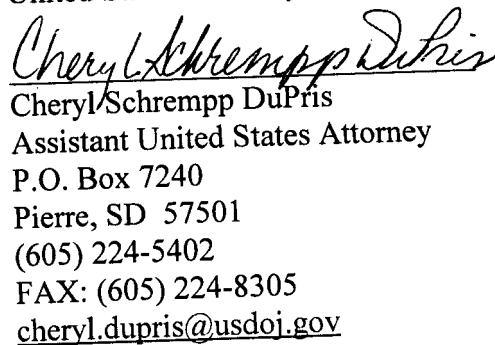 Cheryl Schrempp DuPris
Cheryl Schrempp DuPris
Assistant United States Attorney
P.O. Box 7240
Pierre, SD 57501
(605) 224-5402
FAX: (605) 224-8305
cheryl.dupris@usdoj.gov